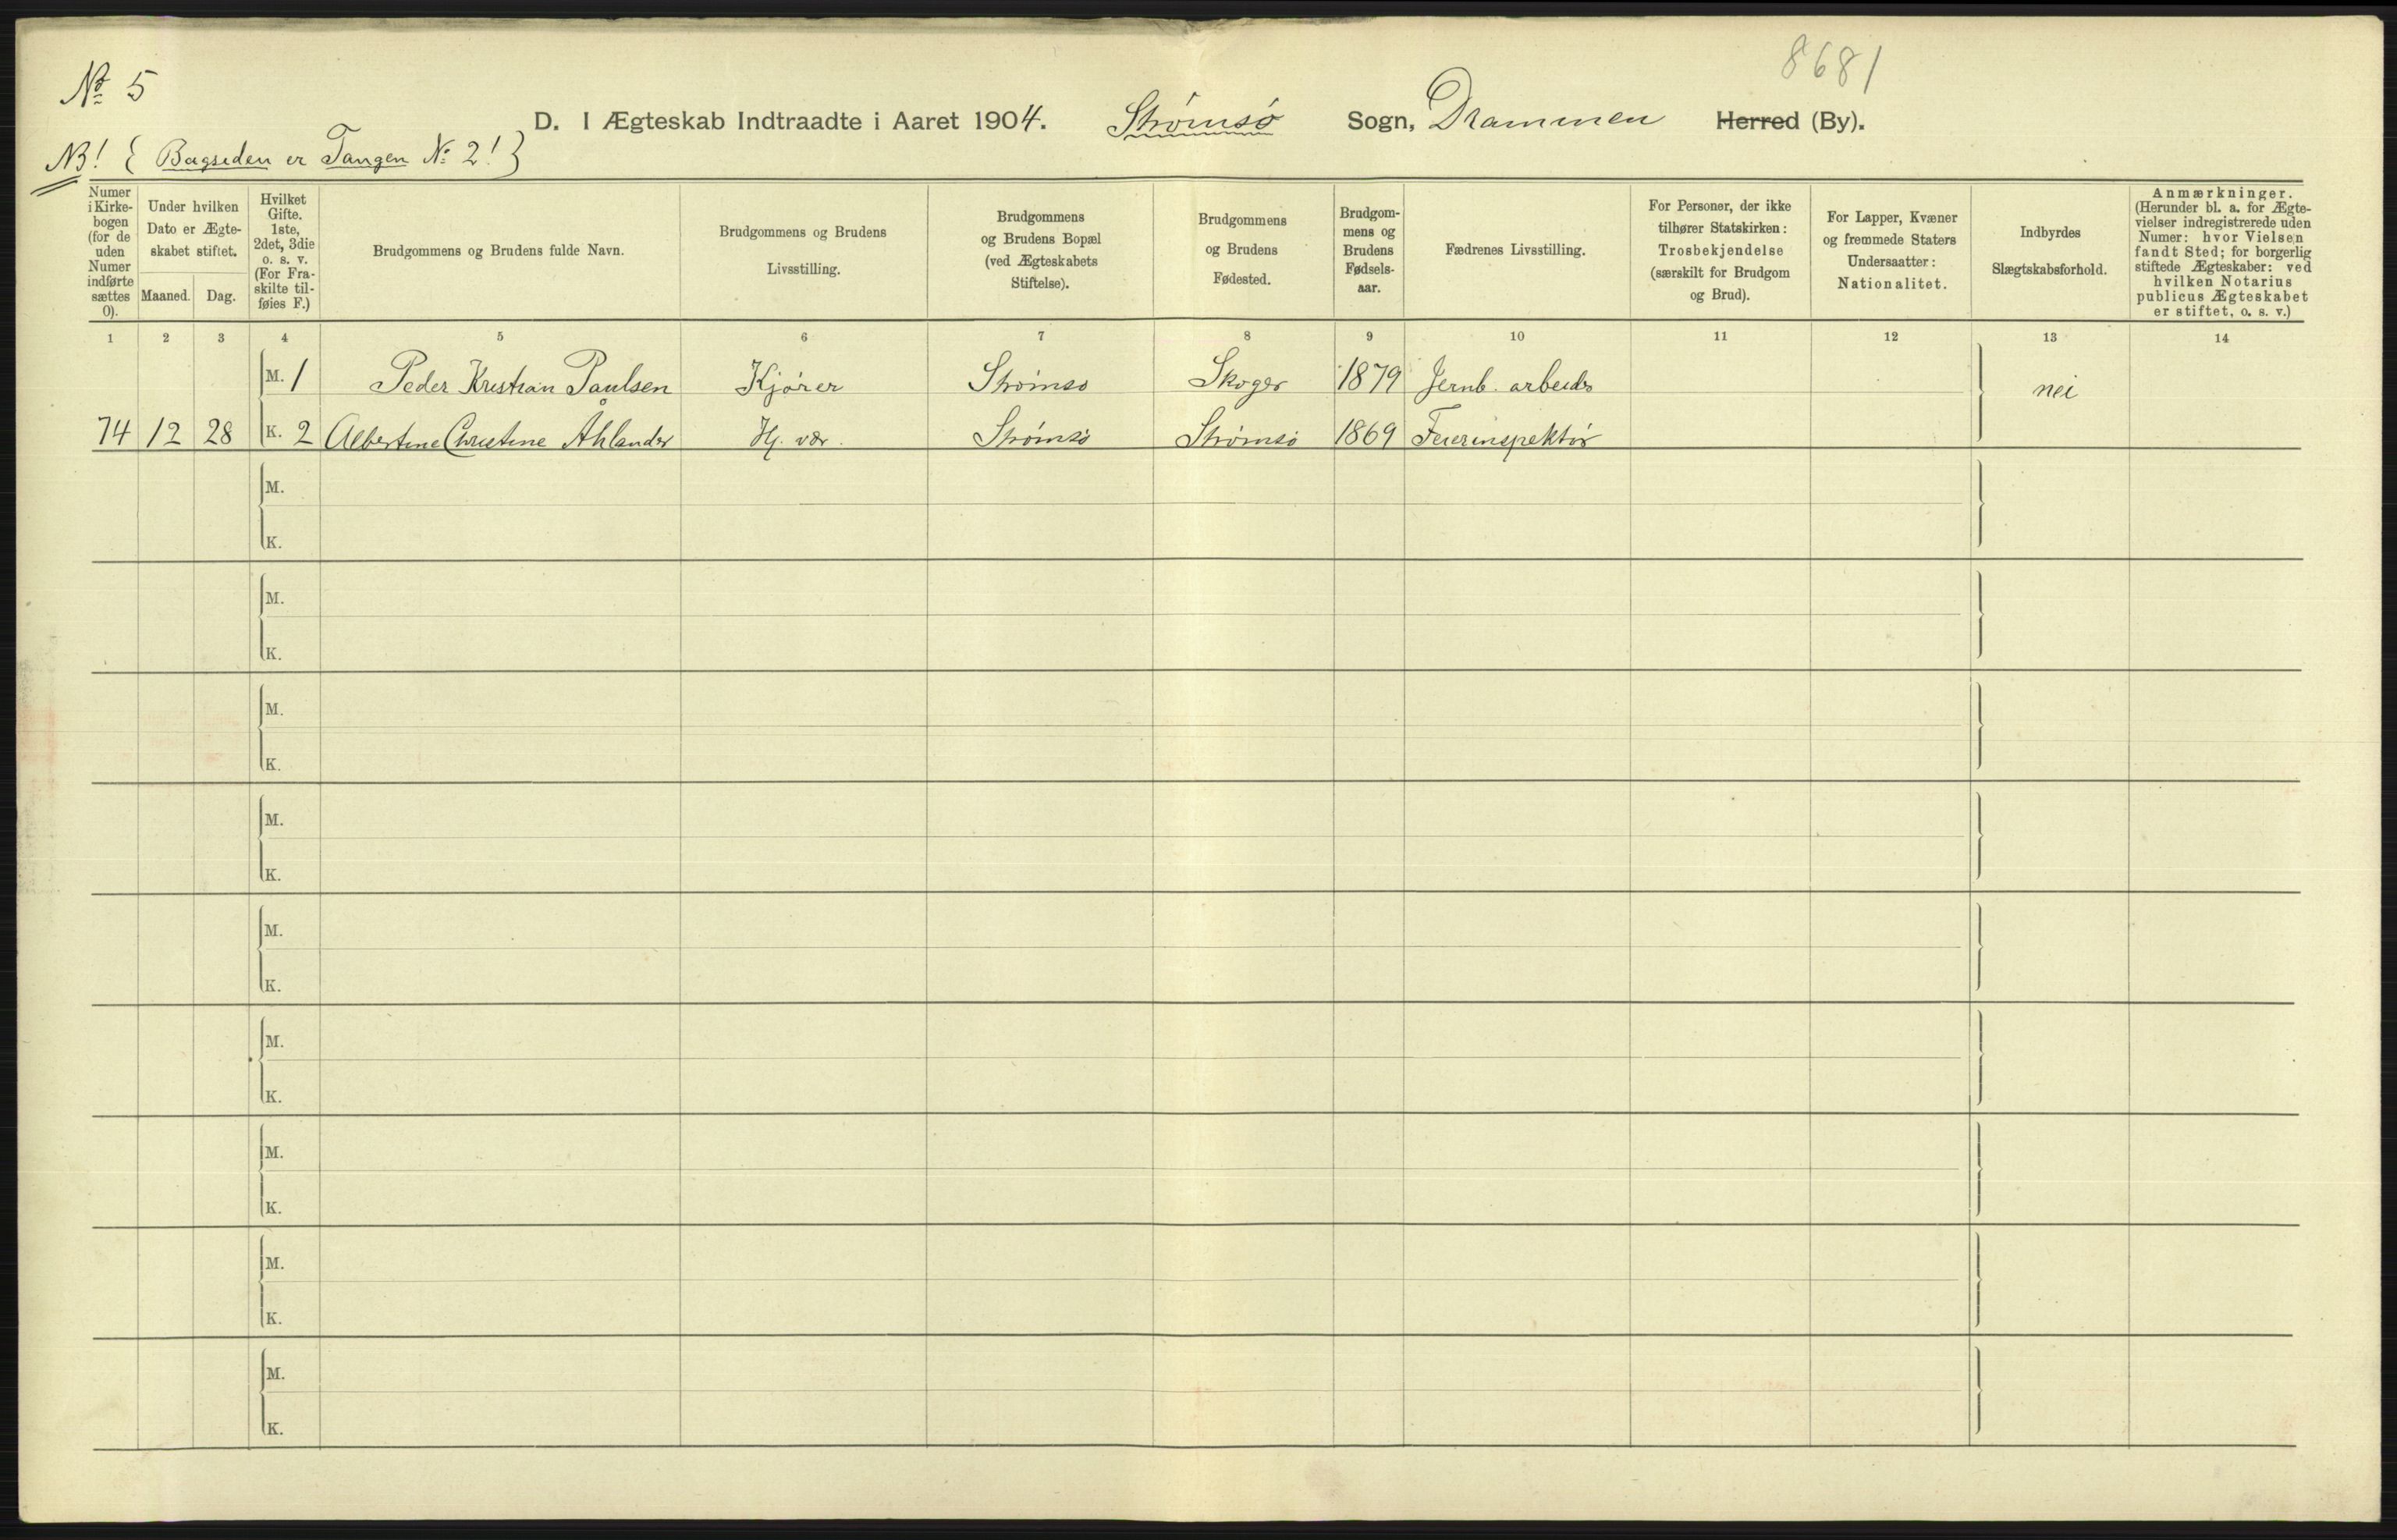 8681
No 5
D. I Ægteskab Indtraadte i Aaret 1904. Strømsø Sogn, Drammen Herred (By).
NB! { Bagsiden er Tangen No 2! }
Numer i Kirke-bogen (for de uden Numer indførte sættes 0).
Under hvilken Dato er Ægte-skabet stiftet.
Maaned. Dag.
Hvilket Gifte. 1ste, 2det, 3die o. s. v. (For Fra-skilte til-føies F.)
Brudgommens og Brudens fulde Navn.
Brudgommens og Brudens Livsstilling.
Brudgommens og Brudens Bopæl (ved Ægteskabets Stiftelse).
Brudgommens og Brudens Fødested.
Brudgom-mens og Brudens Fødsels-aar.
Fædrenes Livsstilling.
For Personer, der ikke tilhører Statskirken: Trosbekjendelse (særskilt for Brudgom og Brud).
For Lapper, Kvæner og fremmede Staters Undersaatter: Nationalitet.
Indbyrdes Slægtskabsforhold.
Anmærkninger. (Herunder bl. a. for Ægte-vielser indregistrerede uden Numer: hvor Vielsen fandt Sted; for borgerlig stiftede Ægteskaber: ved hvilken Notarius publicus Ægteskabet er stiftet, o. s. v.)
1 2 3 4 5 6 7 8 9 10 11 12 13 14
M. 1 Peder Kristian Paulsen Kjører Strømsø Skoger 1879 Jernb. arbeider nei
74 12 28 K. 2 Albertine Christine Åhlander Hj. vær. Strømsø Strømsø 1869 Feierinspektør
M.
K.
M.
K.
M.
K.
M.
K.
M.
K.
M.
K.
M.
K.
M.
K.
M.
K.